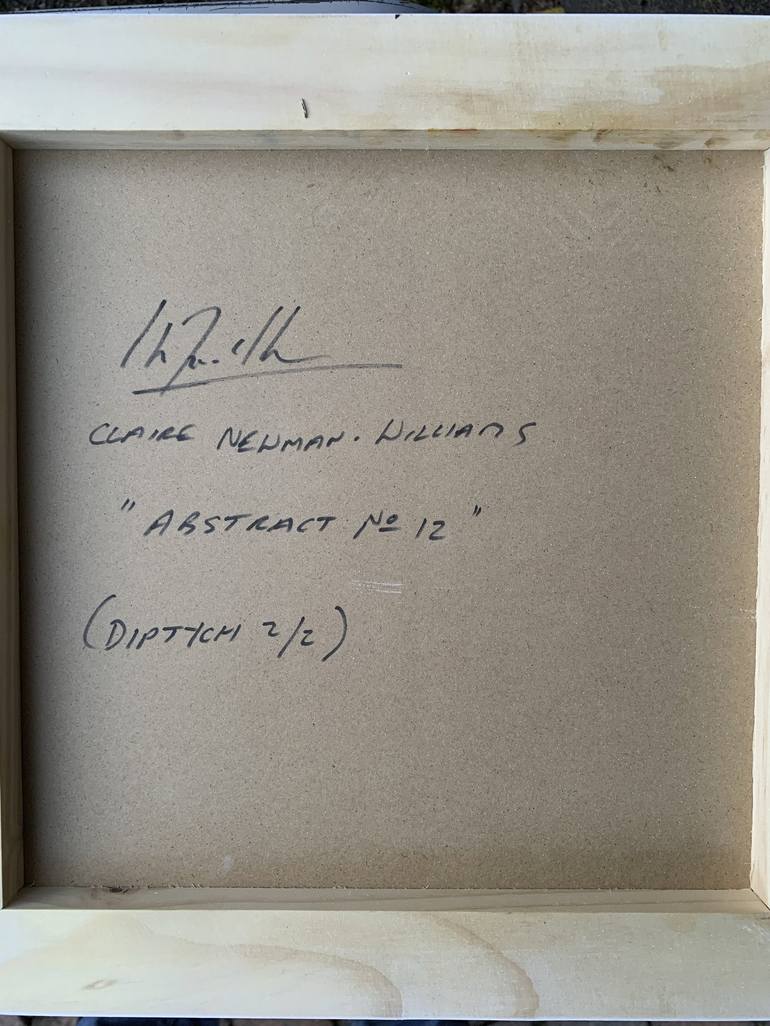 CLAIRE NEWMAN-WILLIAMS
"ABSTRACT No 12"
(DIPTYCH 2/2)